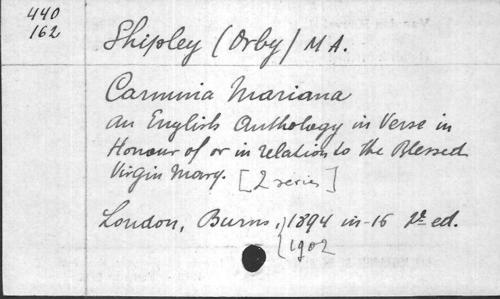 440
162
Shipley (Orby) M A.
Carmina Mariana
An English Anthology in Verse in
Honour of or in relation to the Blessed
Virgin Mary. [2 series]
London, Burns, 1894 in-16 2d ed.
1902